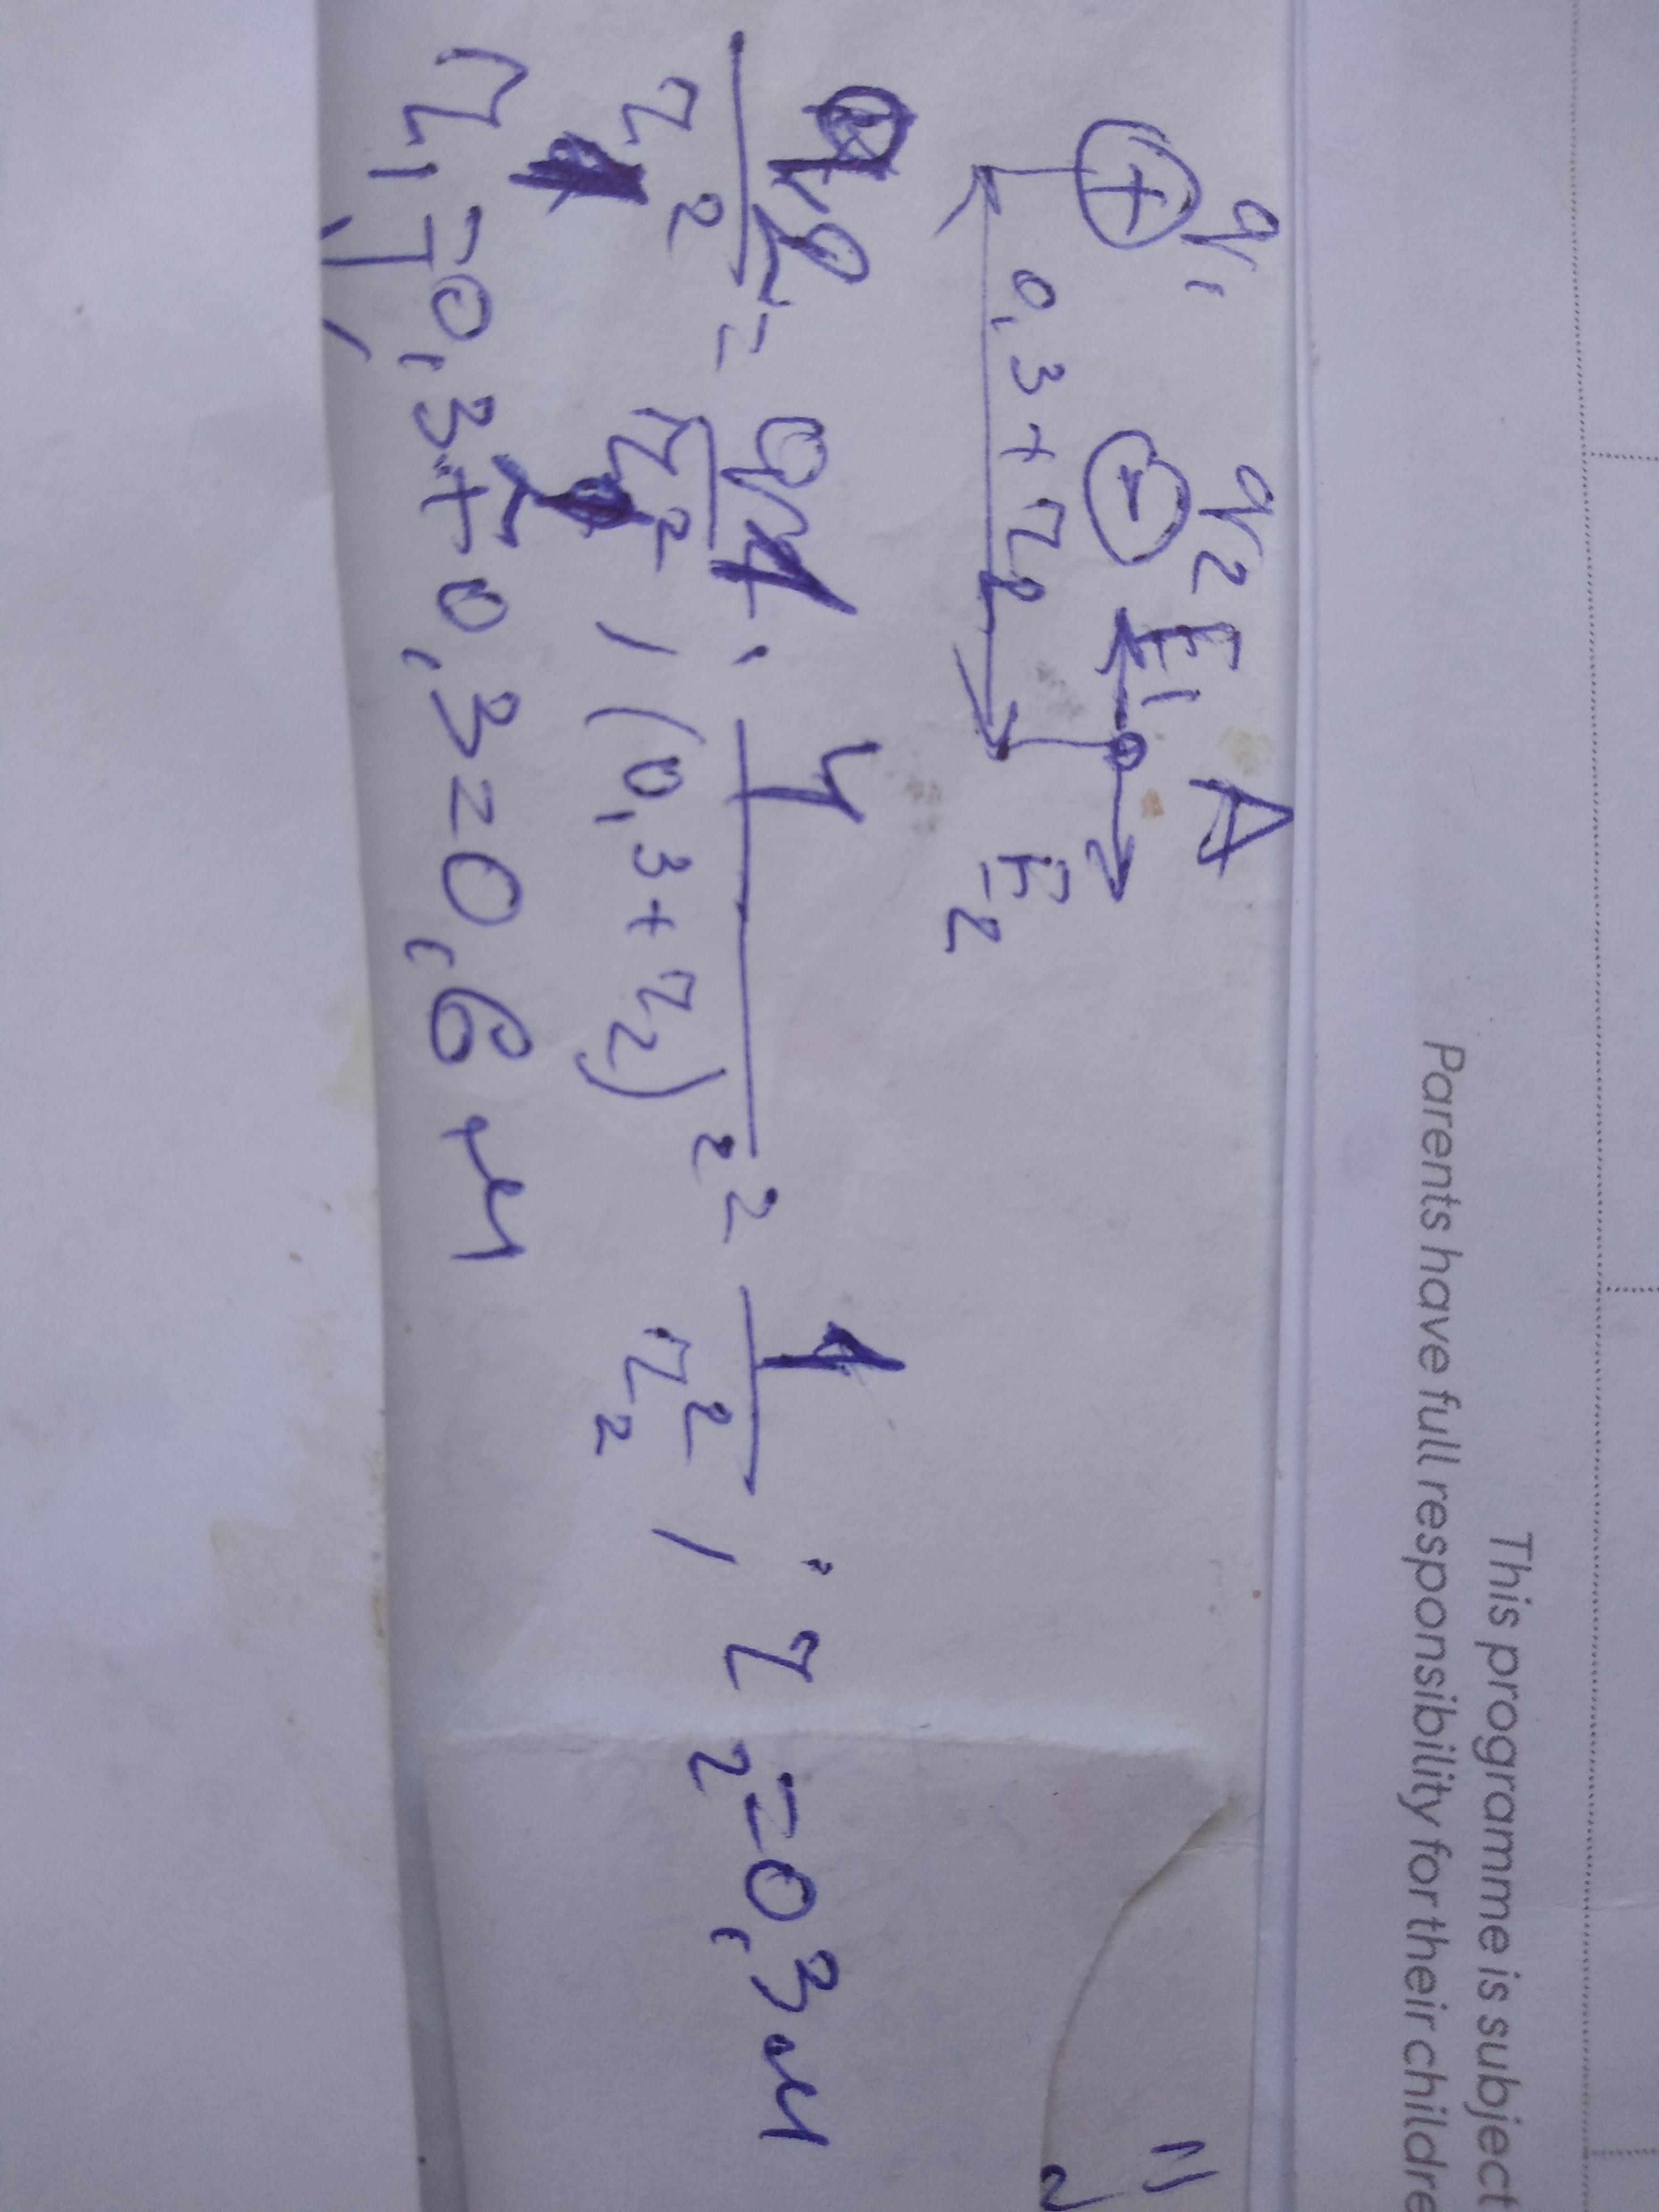 This programme is subject
Parents have full responsibility for their childre
q1 q2 A
+ − E1
0,3+r2 E2
= ; 4/(0,3+r2)² = 1/r2² ; r2=0,3м
r1=0,3+0,3=0,6 м